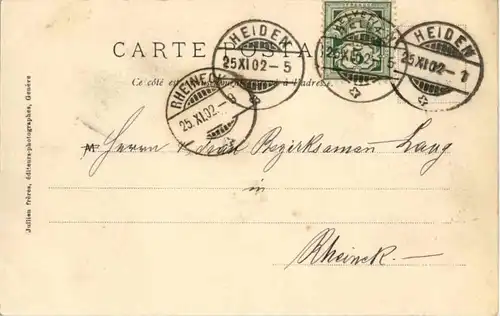 CARTE POSTALE
Ce côté est exclusivement réservé à l'adresse.
HEIDEN
25 XI 02 - 5
HEIDEN
25 XI 02 - 5
5
HEIDEN
25 XI 02 - 7
RHEINECK
25.XI.02.-8
M Herrn & Frau Bezirksamann Lang
in
Rheineck.—
Jullien frères, éditeurs-photographes, Genève